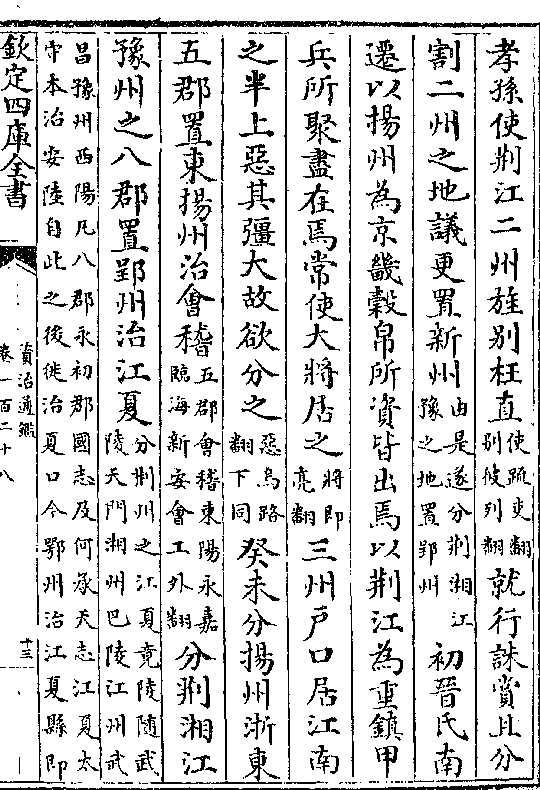 孝孫使荆江二州旌别枉直使疏吏翻别彼列翻就行誅賞且分
割二州之地議更置新州由是遂分荆湘江豫之地置郢州初晉氏南
遷以揚州為京畿穀帛所資皆出焉以荆江為重鎮甲
兵所聚盡在焉常使大將居之將即亮翻三州户口居江南
之半上惡其彊大故欲分之惡烏路翻下同癸未分揚州浙東
五郡置東揚州治會稽五郡會稽東陽永嘉臨海新安會工外翻分荆湘江
豫州之八郡置郢州治江夏分荆州之江夏竟陵隨武陵天門湘州巴陵江州武
昌豫州西陽凡八郡永初郡國志及何承天志江夏太
守本治安陸自此之後徙治夏口今鄂州治江夏縣即
欽定四庫全書
資治通鑑
卷一百二十八
十三